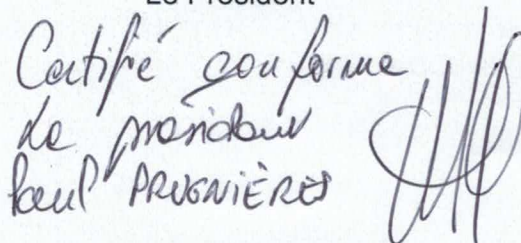 Le Président
Certifié conforme
Le président
Paul PRUGNIÈRES